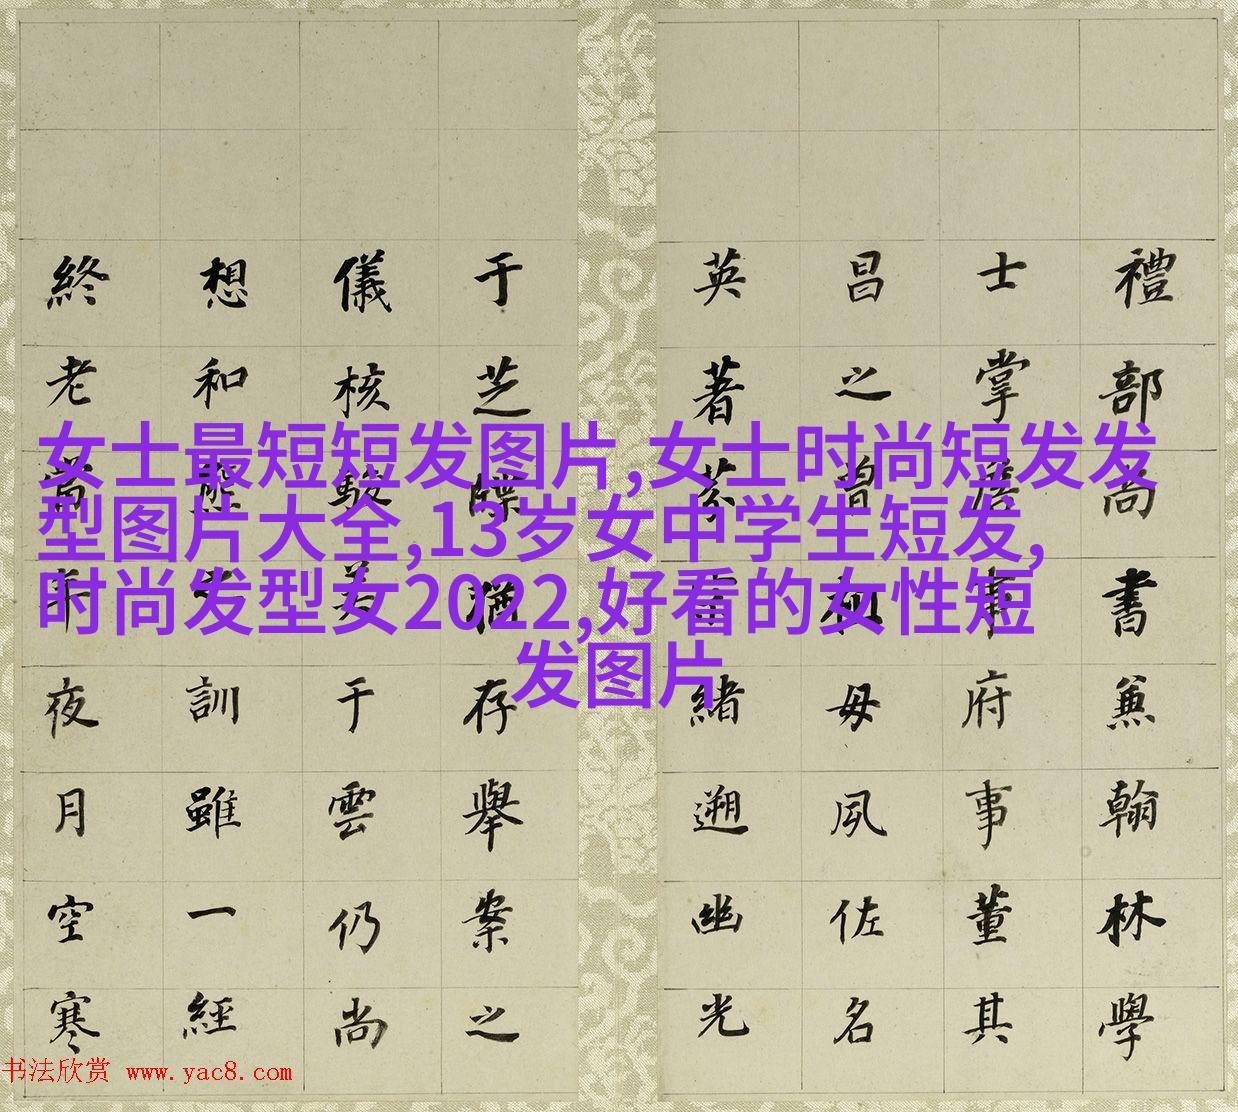 女士最短短发图片,女士时尚短发发
型图片大全,13岁女中学生短发,
时尚发型女2022,好看的女性短
发图片
禮部尚書兼翰林學
士掌詹事府事董其
昌之曾祖母夙佐名
英著芬緒遡幽光
于芝牒猶存舉案之
儀核駿于雲仍尚
想和熊之訓雖一經
終老當年夜月空寒
书法欣赏 www.yac8.com